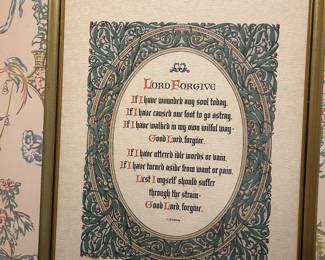 LORD FORGIVE
If I have wounded any soul today.
If I have caused one foot to go astray.
If I have walked in my own wilful way-
Good Lord, forgive.
If I have uttered idle words or vain.
If I have turned aside from want or pain.
Lest I myself should suffer
through the strain-
Good Lord, forgive.